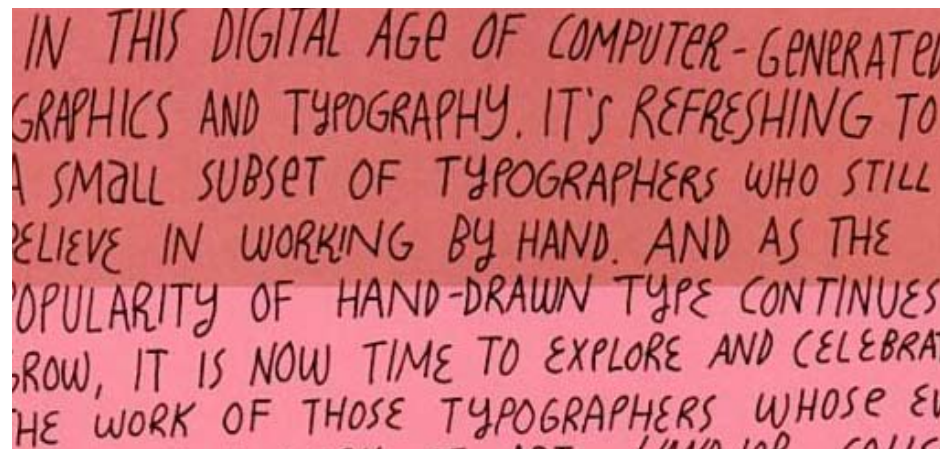 IN THIS DIGITAL AGE OF COMPUTER-GENERATED
GRAPHICS AND TYPOGRAPHY. IT'S REFRESHING TO
A SMALL SUBSET OF TYPOGRAPHERS WHO STILL
BELIEVE IN WORKING BY HAND. AND AS THE
POPULARITY OF HAND-DRAWN TYPE CONTINUES
GROW, IT IS NOW TIME TO EXPLORE AND CELEBRAT
THE WORK OF THOSE TYPOGRAPHERS WHOSE